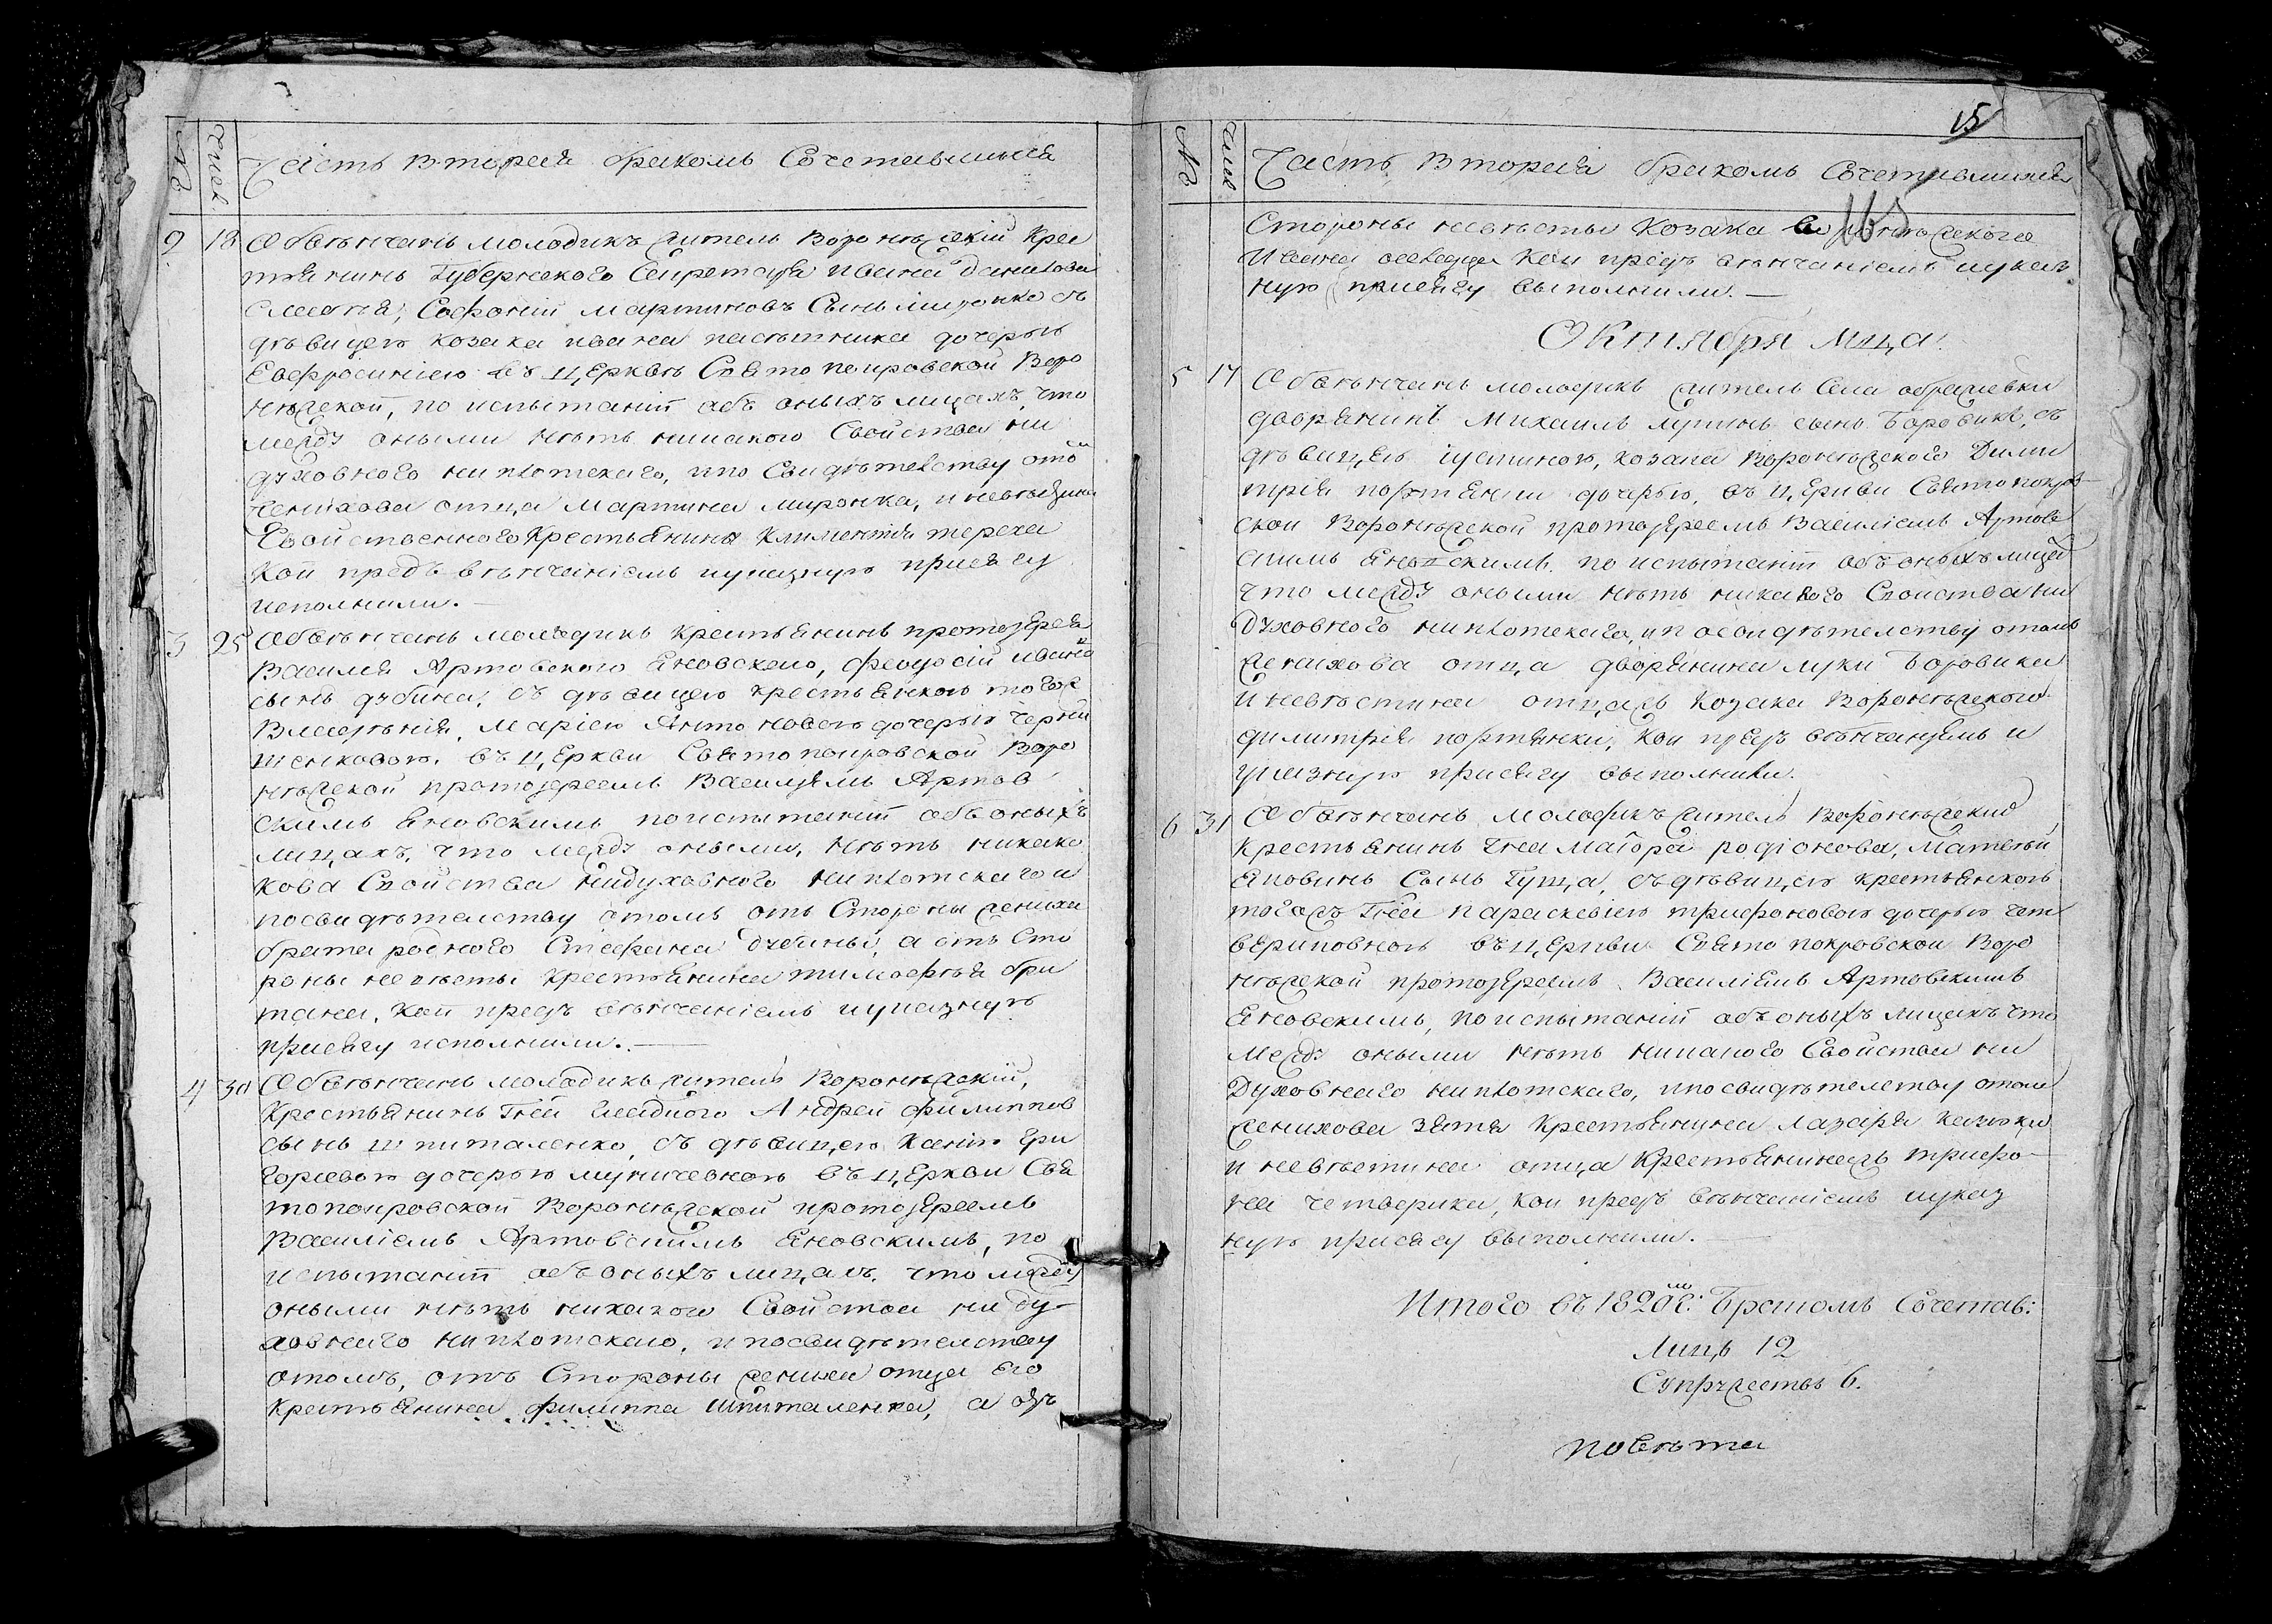 №
Числ.
Часть вторая бракомъ Сочетавшихся
2 18 Обвѣнчанъ молодикъ житель Воронѣжскій Крес
тянинъ Губернского Секретаря ивана данилова
Софоній мартиновъ Сынъ миронко съ
дѣвицею козака ивана пасѣтника дочерью
Евфросиніею въ Церквѣ Свято покровской Воро
нѣжской, по испытаніи объ оныхъ лицахъ, что
между оными нѣтъ никакого Свойства ни
духовного ниплотскаго, ипо Свидѣтелству ото
женихова отца Мартина миронка, и невѣстина
Свойственного Крестьянина Климентія тереха
Кои предъ вѣнчаніемъ иуказную присягу
исполнили.—
3 25 Обвѣнчанъ молодикъ крестьянинъ протоіерея
Василія Артовского Яновского, феодосій ивано
сынъ дубина, съ дѣвицею крестьянкою тогожъ
Владѣнія, Маріею Антоновою дочерью черни
шенковою, въ Церкви Святопокровской Воро
нѣжской протоіереемъ Василіемъ Артов
скимъ Яновскимъ поиспытаніи объ оныхъ
лицахъ, что между оными, нѣтъ никако
кова Свойства нидуховного ниплотскаго и
посвидѣтелству отомъ отъ Стороны жениха
брата родного Стефана дубины, а отъ Сто
роны невѣсты Крестьянина тимофѣя бри
тана, Кои предъ вѣнчаніемъ иуказную
присягу исполнили.—
4 30 Обвѣнчанъ молодикъ житель Воронѣжскій,
Крестьянинъ Гжи Андрей филиппов
сынъ шпиталенко, съ дѣвицею Ксенію Гри
горіевою дочерью въ Церкви Свя
топокровской Воронѣжской протоіереемъ
Василіемъ Артовскимъ Яновскимъ, по
испытаніи объ оныхъ лицахъ, что между
оными нѣтъ никакого Свойства ниду-
ховнаго ниплотскаго, ипосвидѣтелству
отомъ, отъ Стороны жениха отца его
Крестьянина филиппа шпиталенка, а отъ
15
№
Числ
Часть вторая бракомъ Сочетавшихся
165
Стороны невѣсты Козака Воронѣжского
Ивана Кои предъ вѣнчаніемъ иуказ
ную присягу выполнили.—
Октября мца.
5 17 Обвѣнчанъ молодикъ житель Села
дворянинъ Михаилъ лукинъ сынъ Боровикъ, съ
дѣвицею іустиною, козака Воронѣжского Дими
трія портянки дочерью, въ Церкви Святопокров
ской Воронѣжской протоіереемъ Василіемъ Артов
скимъ Яновскимъ. по испытаніи объ оныхъ лица
что между оными нѣтъ никакого Свойства ни
Духовного ниплотскаго, ипосвидѣтелству отомъ
женихова отца дворянина луки Боровика
И невѣстина отцажъ Козака Воронѣжского
димитрія портянки, Кои предъ вѣнчаніемъ и
указную присягу выполнили.
6 31 Обвѣнчанъ Молодикъ житель Воронѣжский
Крестьянинъ Гна Маіора родіонова, Матвѣй
Яковинъ Сынъ Гуща, съ дѣвицею крестьянкою
тогожъ Гна параскевіею трифоновою дочерью чет
вериковною въ Церкви Свято покровской Воро
нѣжской протоіереемъ Василіемъ Артовскимъ
Яновскимъ, поиспытаніи объ оныхъ лицахъ что
Между оными нѣтъ никакого Свойства ни
Духовнаго ниплотскаго, ипосвидѣтелству отом
женихова зятя Крестьянина лазаря
и невѣстина отца Крестьянинажъ трифо-
на четверика, Кои предъ вѣнчаніемъ иуказ
ную присягу выполнили.—
Итого въ 1820мъ г: Бракомъ Сочетав:
Лицъ 12
Супружествъ 6.
повѣта